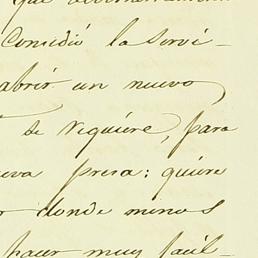 que
Concedió la servi-
abrir un nuevo
se requiere, para
eva presa: quiere
r donde menos
hacer muy fácil-